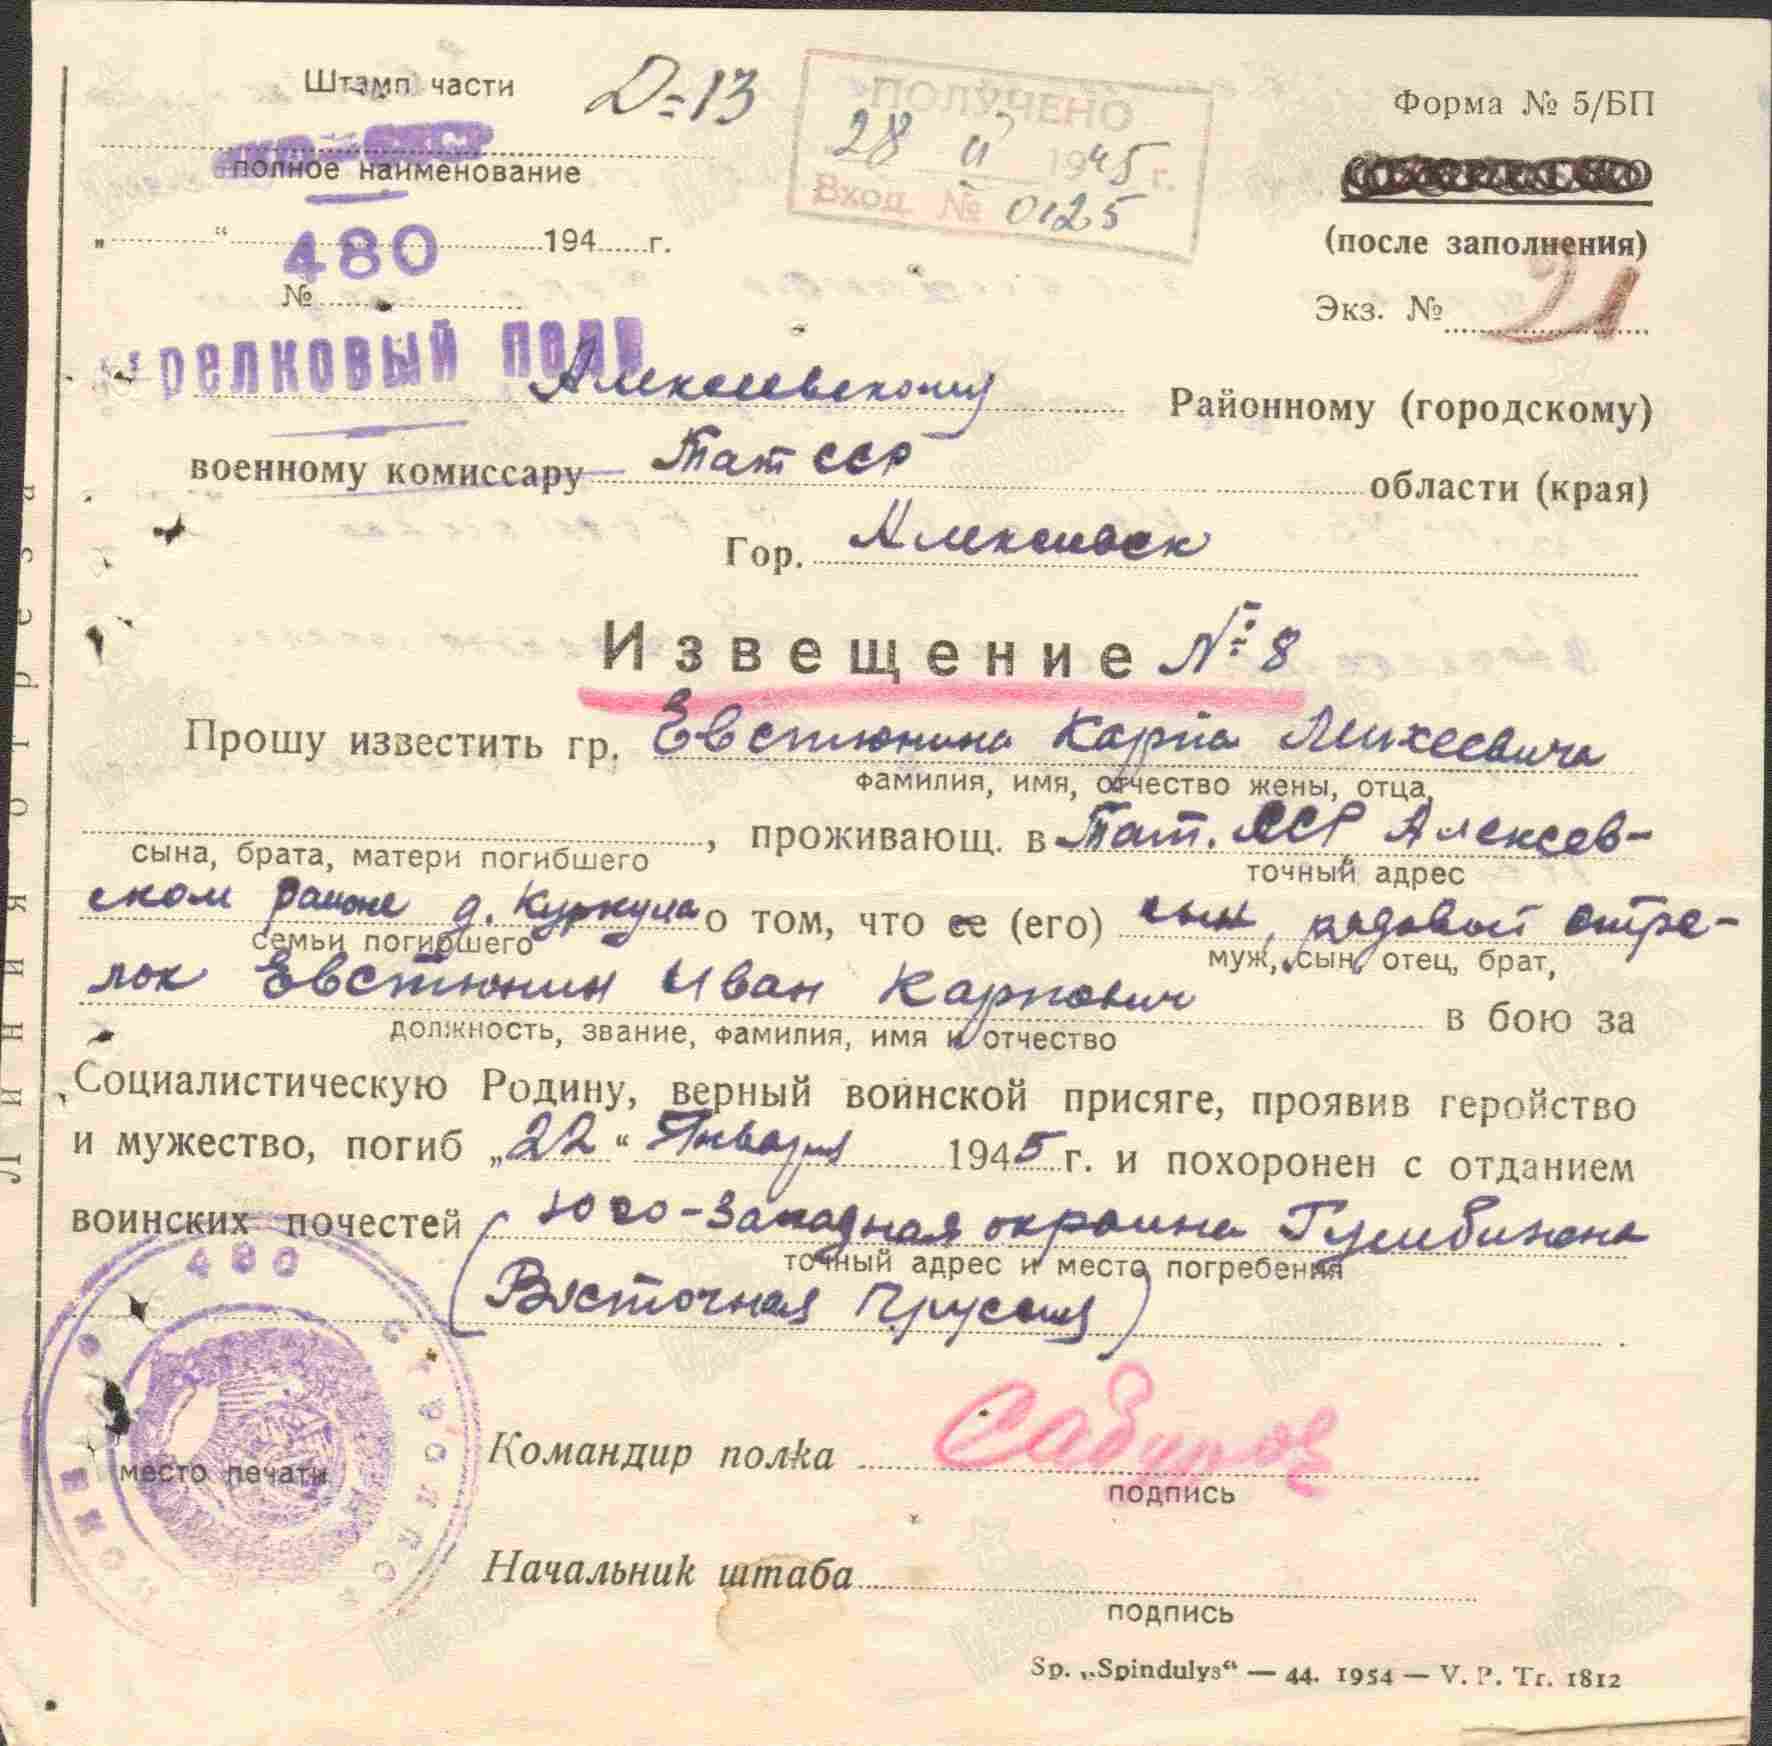 Штамп части
Д=13
ПОЛУЧЕНО
28 II 1945 г.
Вход. № 0125
Форма № 5/БП
полное наименование
(после заполнения)
„ “ 194 г.
480
№
Экз. № 21
стрелковый полк
Алексеевскому Районному (городскому)
военному комиссару Тат ССР области (края)
Гор. Алексеевск
Извещение №8
Прошу известить гр. Евстюнина Карпа Михеевича
фамилия, имя, отчество жены, отца,
, проживающ. в Тат. ССР Алексеев-
сына, брата, матери погибшего точный адрес
ском районе д. Куркуль о том, что ее (его) сын, рядовой стре-
семьи погибшего муж, сын, отец, брат,
лок Евстюнин Иван Карпович в бою за
должность, звание, фамилия, имя и отчество
Социалистическую Родину, верный воинской присяге, проявив геройство
и мужество, погиб „22“ Января 1945 г. и похоронен с отданием
воинских почестей юго-западная окраина Гумбинена
точный адрес и место погребения
(Восточная Пруссия)
480
место печати
Командир полка
подпись
Начальник штаба
подпись
Sp. „Spindulys“ — 44. 1954 — V. P. Tr. 1812
Линия отреза